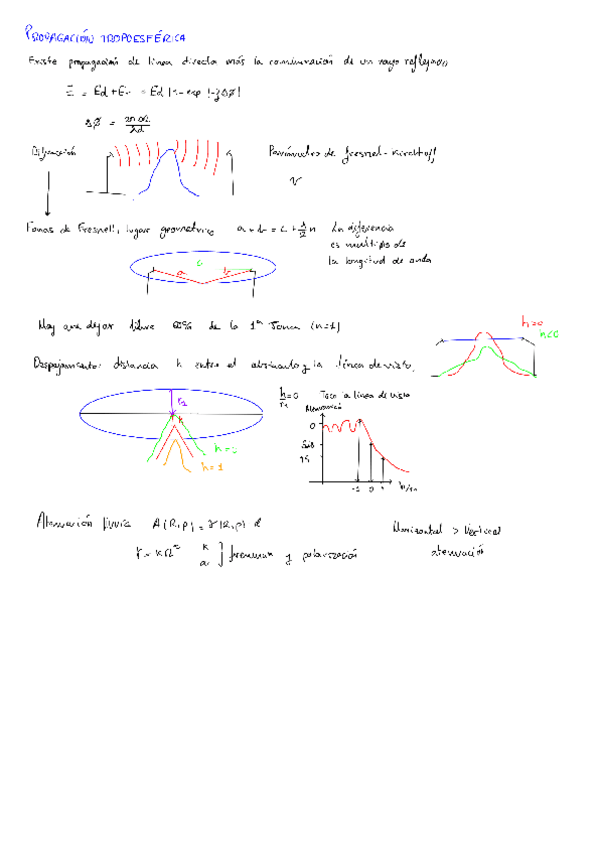 PROPAGACIÓN TROPOESFÉRICA
Existe propagación de linea directa más la combinación de un rayo reflejado
E = Ed + Er = Ed |1 - exp (-jΔØ)|
ΔØ =
Difracción
Parámetro de Fresnel-Kirchoff
V
Zonas de Fresnel: lugar geometrico a + b = L + λ/2 n La diferencia
es multiplo de
la longitud de onda
a b
Hay que dejar libre 60% de la 1ª zona (n=1)
h>0
h<0
Despejamiento: distancia h entre el obstáculo y la línea de vista,
r1
h/r1 = 0 Toca la línea de vista
Atenuación
0
h = 1
-1 0 1 h/r1
Atenuación lluvia A(R,p) = γ(R,p) d
Horizontal > Vertical
atenuación
γ = k R^α k α ] frecuencia y polarización